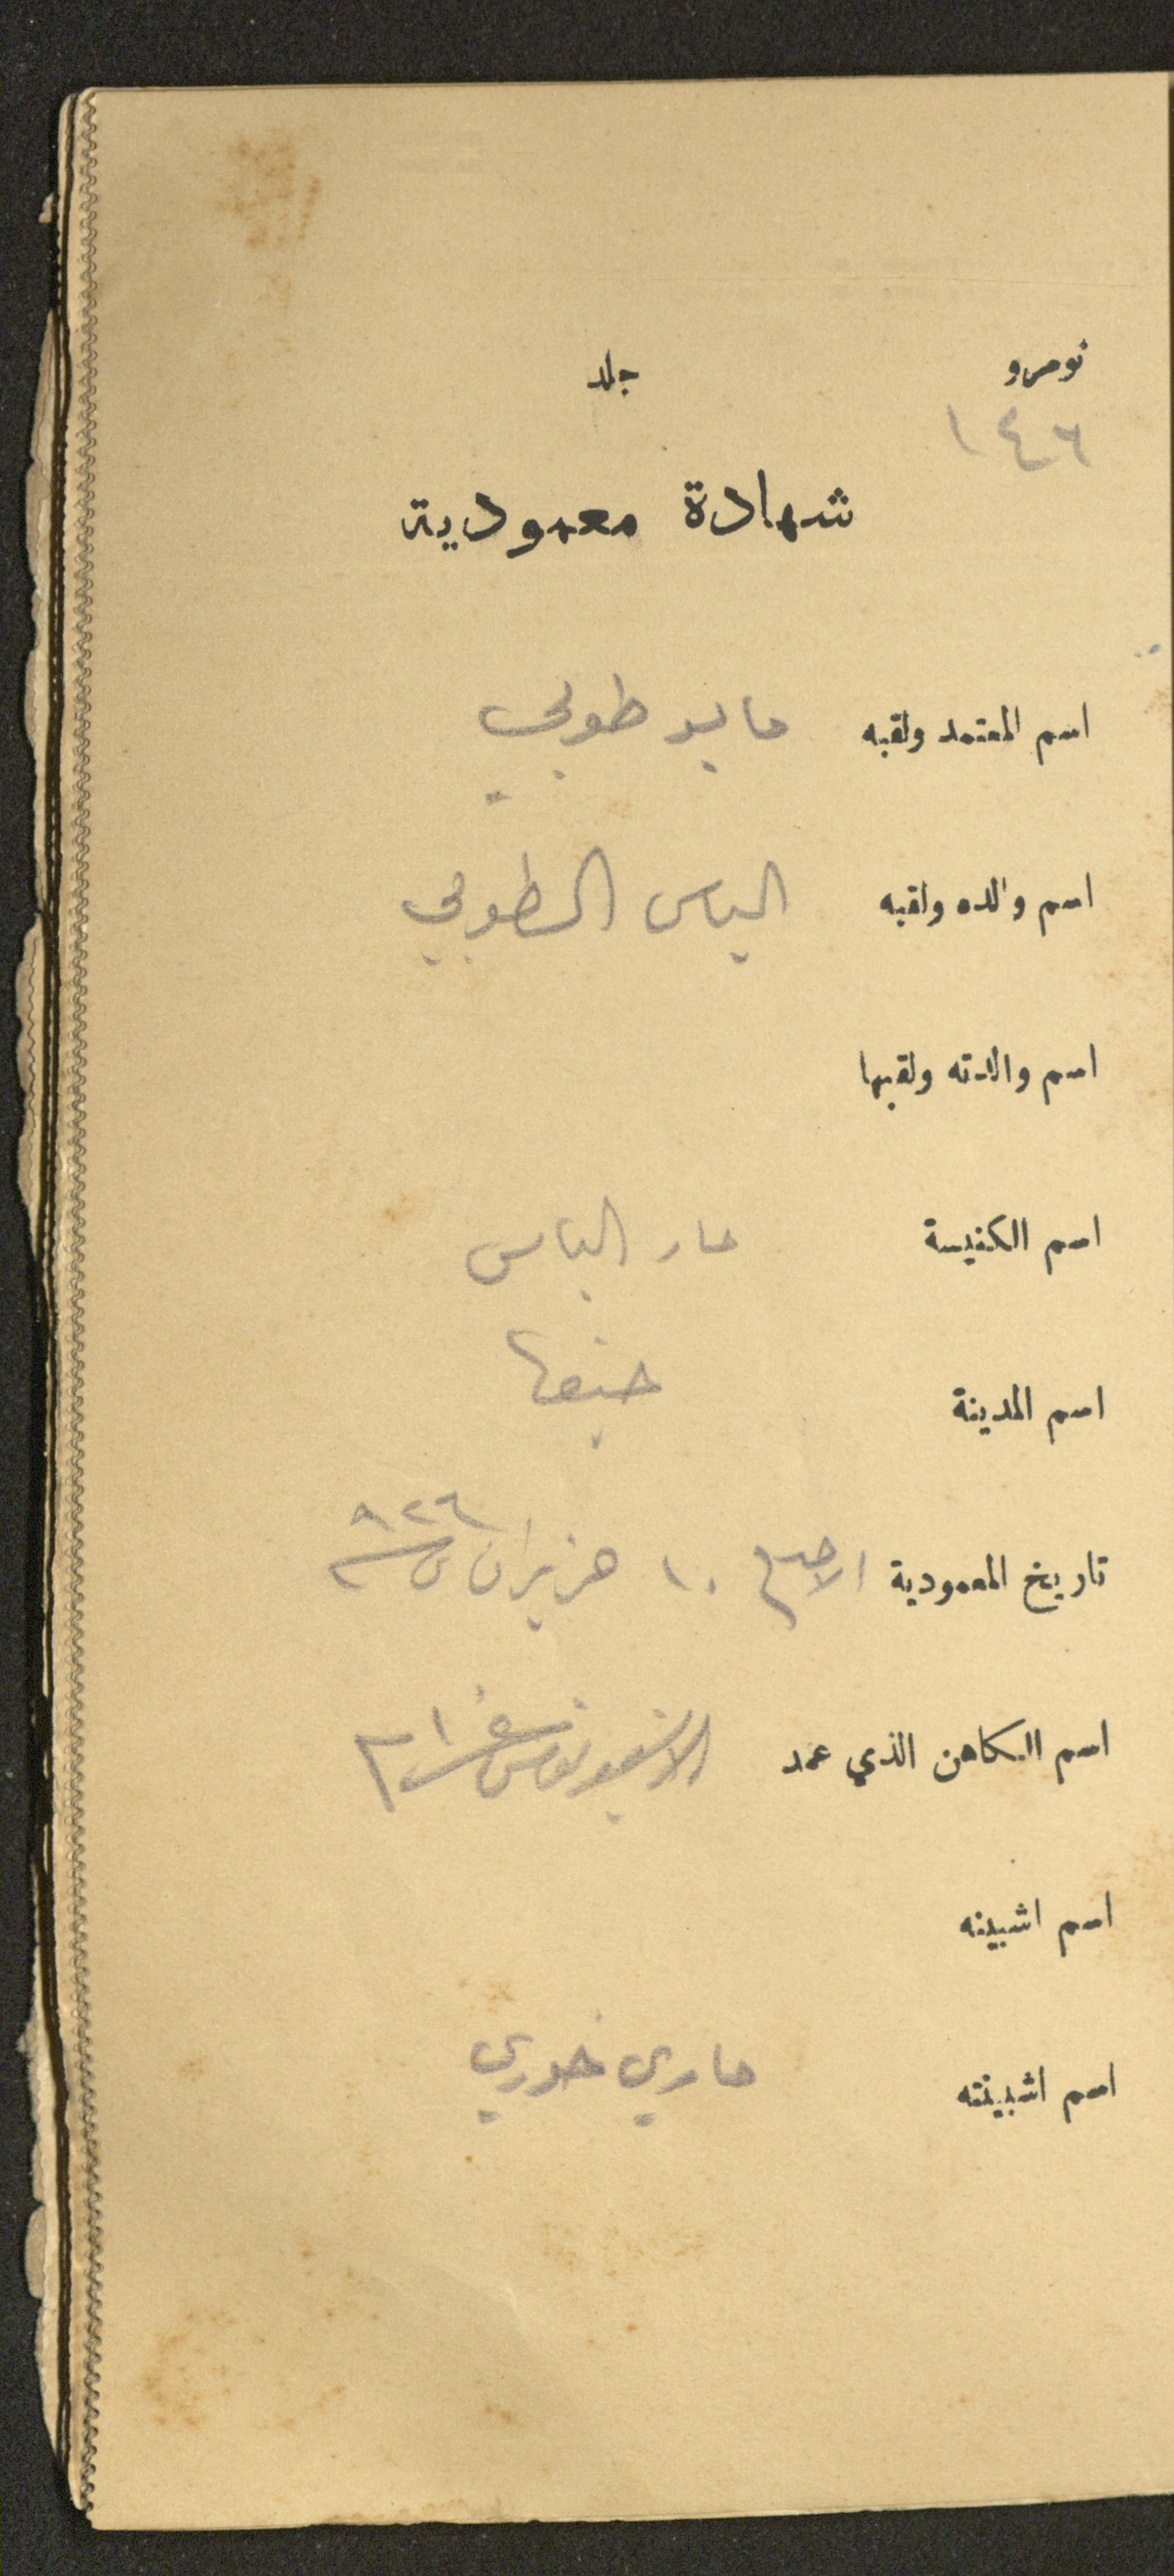 نومرو جلد
١٤٦
شهادة معمودية
اسم المعتمد ولقبه طوبي
اسم والده ولقبه الياس الطوبي
اسم والدته ولقبها
اسم الكنيسة مار الياس
اسم المدينة حيفا
تاريخ المعمودية ١٠ حزيران ٩٢٦
اسم الكاهن الذي عمد
اسم اشبينه
اسم اشبينته ماري خوري